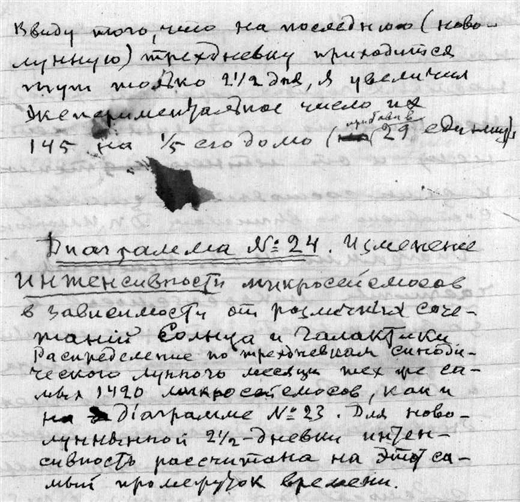 Ввиду того, что на последнюю (ново-
лунную) трехдневку приходится
тут только 2 1/2 дня, я увеличил
экспериментальное число их
145 на 1/5 его долю (прибавив 29 единиц)
Диаграмма № 24. Изменение
интенсивности микросейсмосов
в зависимости от различных соче-
таний Солнца и Галактики
Распределение по трехдневкам синоди-
ческого лунного месяца тех же са-
мых 1420 микросейсмосов, как и
на Діаграмме № 23. Для ново-
луннынной 2 1/2-дневки интен-
сивность рассчитана на этот са-
мый промежуток времени.